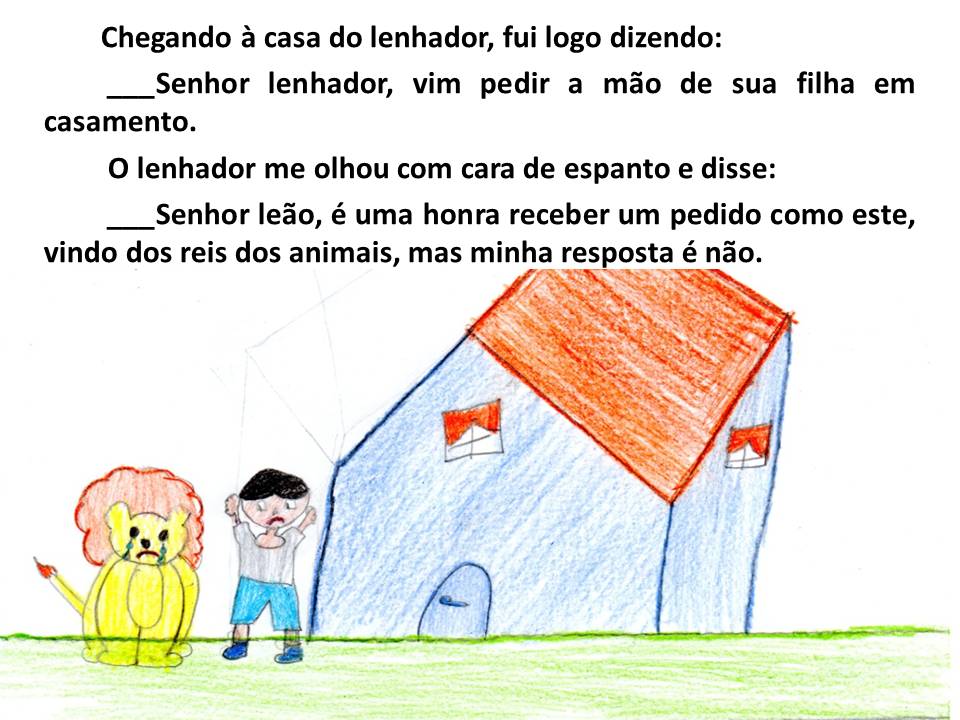 Chegando à casa do lenhador, fui logo dizendo:
___Senhor lenhador, vim pedir a mão de sua filha em
casamento.
O lenhador me olhou com cara de espanto e disse:
___Senhor leão, é uma honra receber um pedido como este,
vindo dos reis dos animais, mas minha resposta é não.